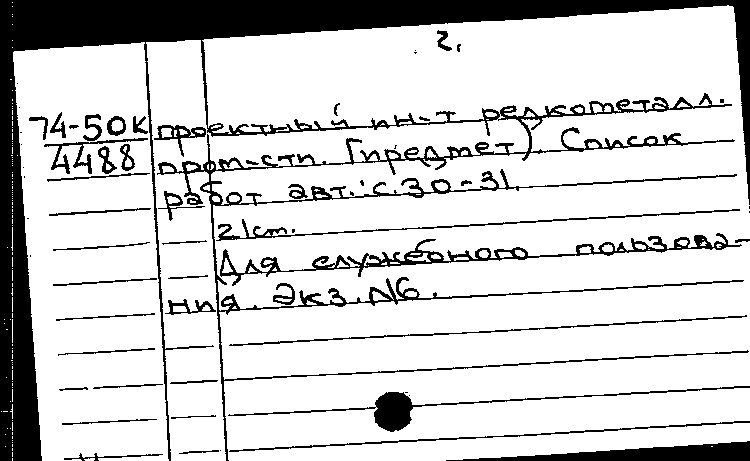 2.
74-50к проектный ин-т редкометалл.
4488 пром-сти. Гиредмет). Список
работ авт.: с.30-31.
21 см.
Для служебного пользова-
ния. Экз. №6.